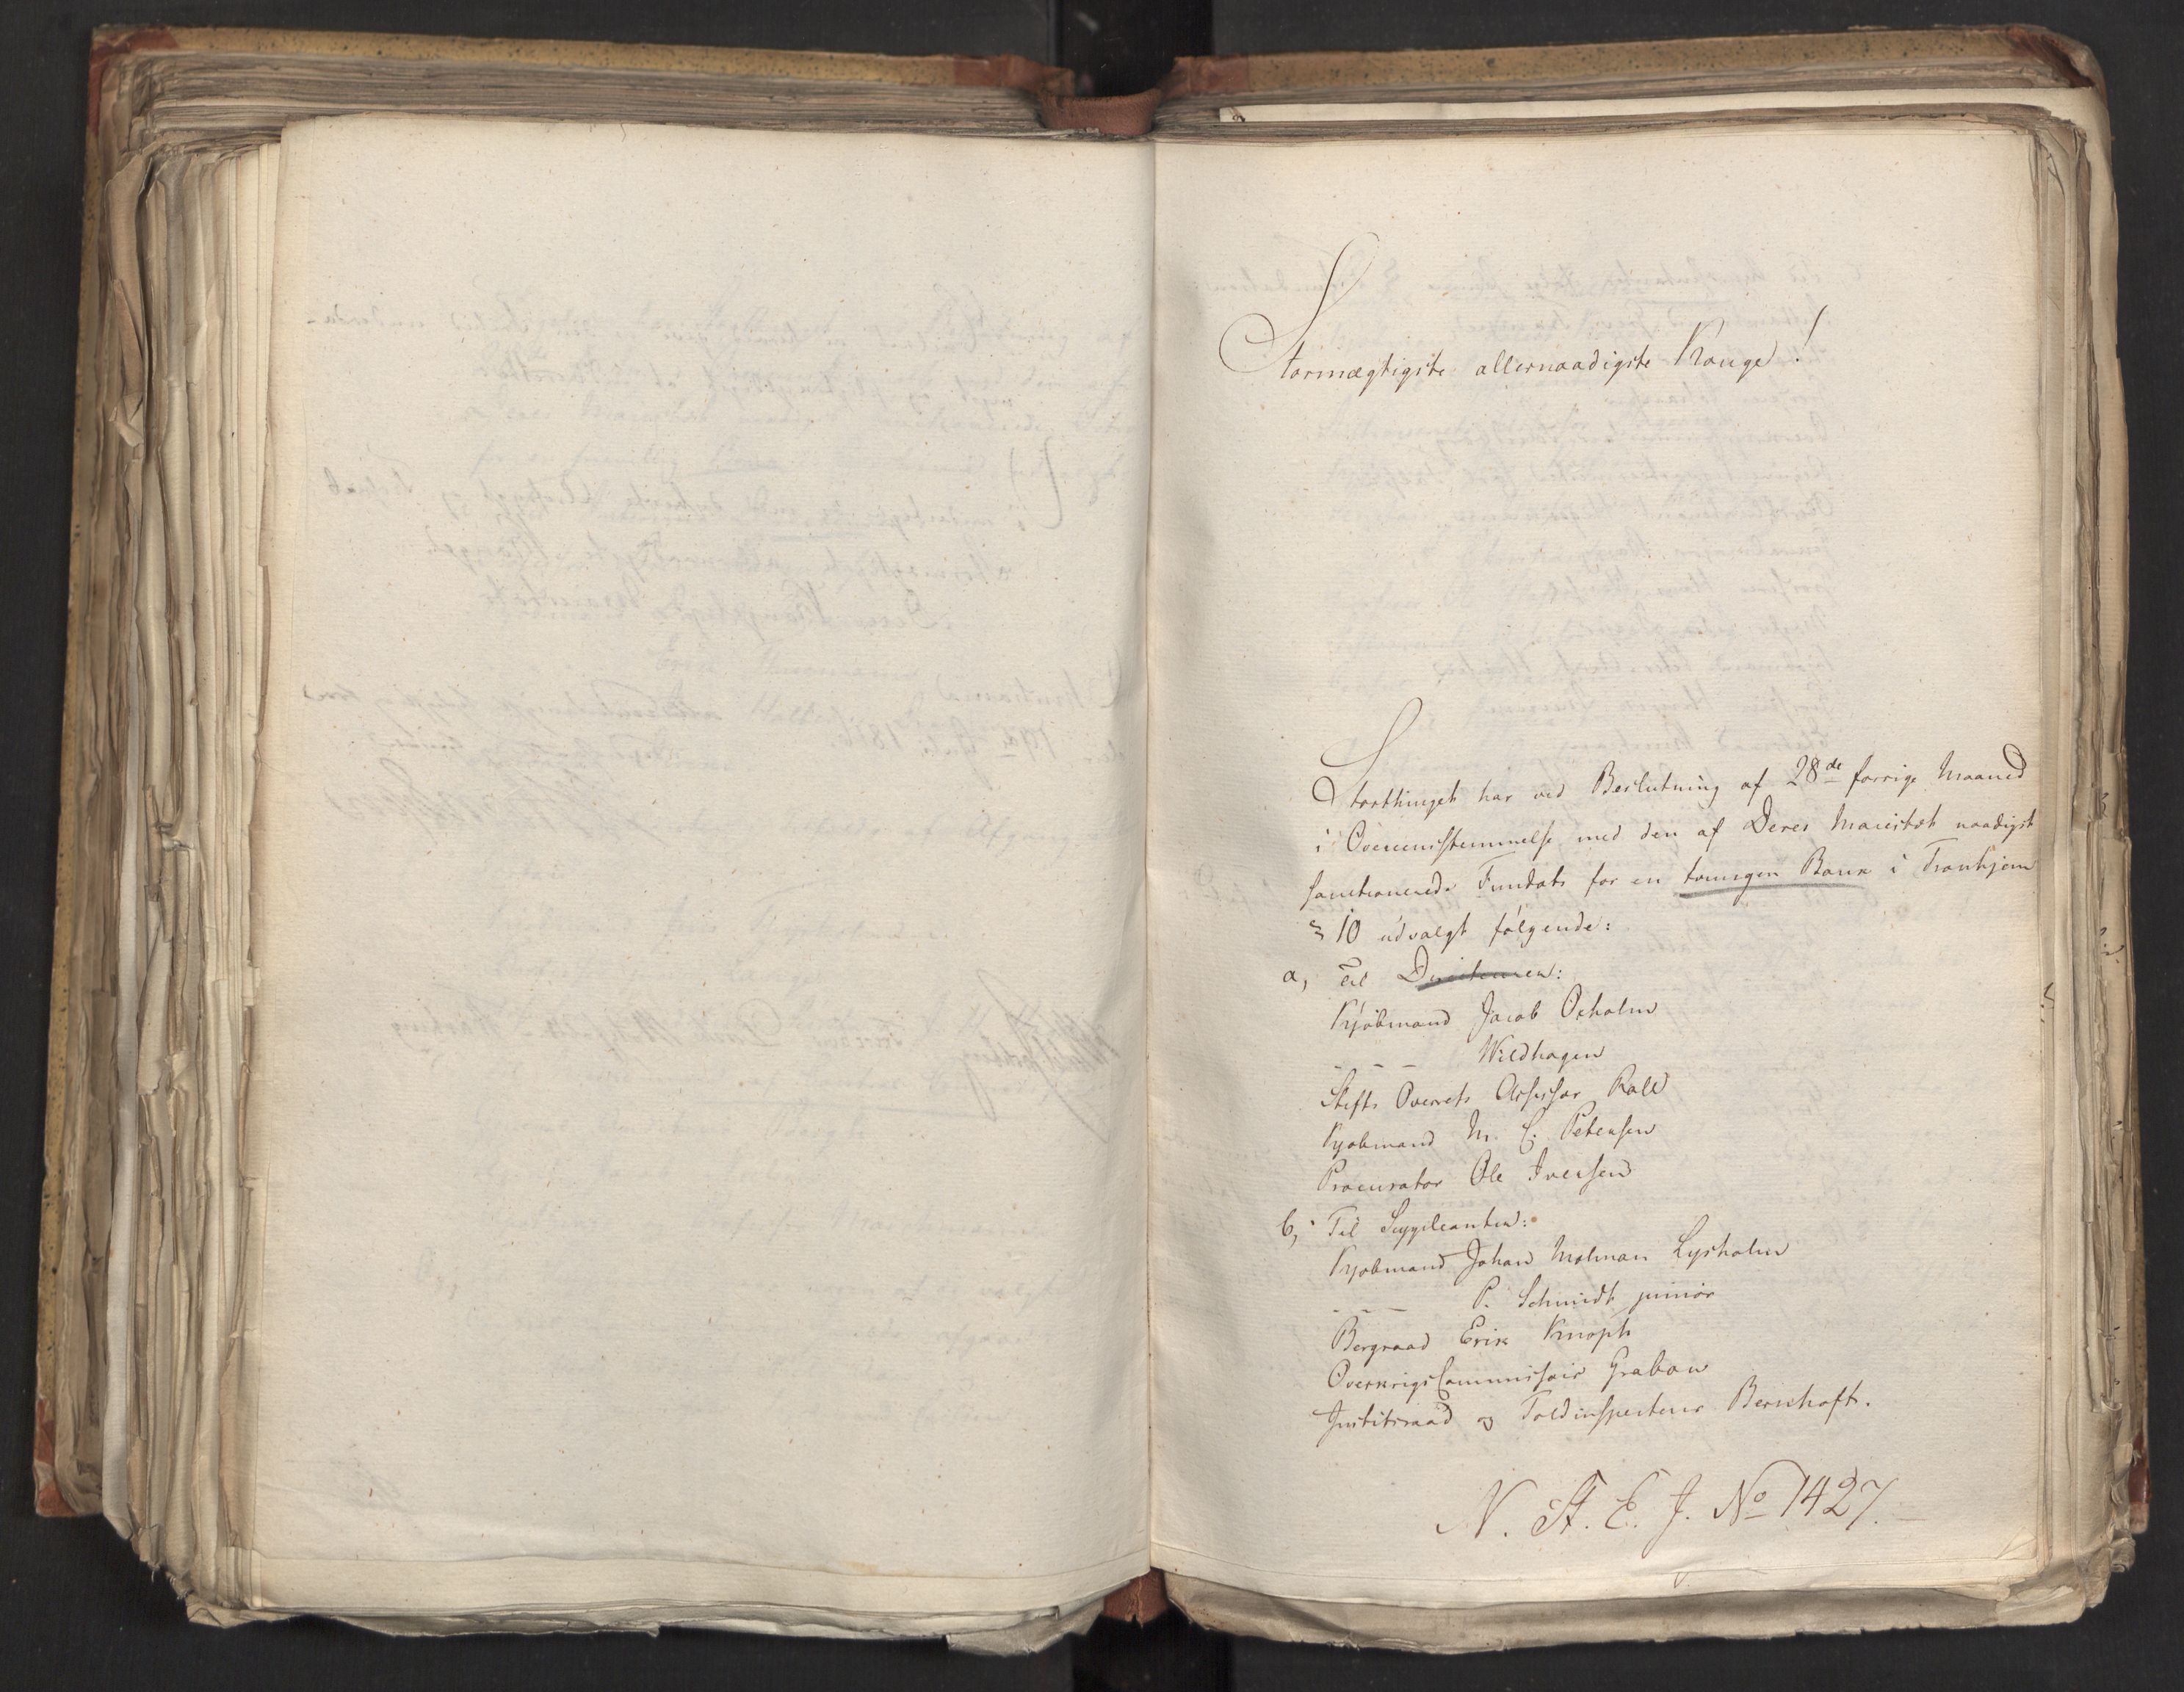 Stormægtigste allernaadigste Konge!
Storthinget har ved Beslutning af 28de forrige Maaned
i Overeensstemmelse med den af Deres Majestæt naadigst
sanctionerede Fundats for en Bank i Tronhjem
§ 10 udvalgt følgende:
a, Til Directeurer:
Kjøbmand Jacob Oxholm
- - - Wildhagen
Stifts Overrets Assessor Roll
Kjøbmand M. C. Petersen
Procurator Ole Iversen
b, Til Suppleanter:
Kjøbmand Johan Molman Lysholm
- - - P. Schmidt junior
Bergraad Erik Knoph
OverkrigsCommissair Grabow
Justitsraad og Toldinspecteur
N. St. E. J. No 1427.